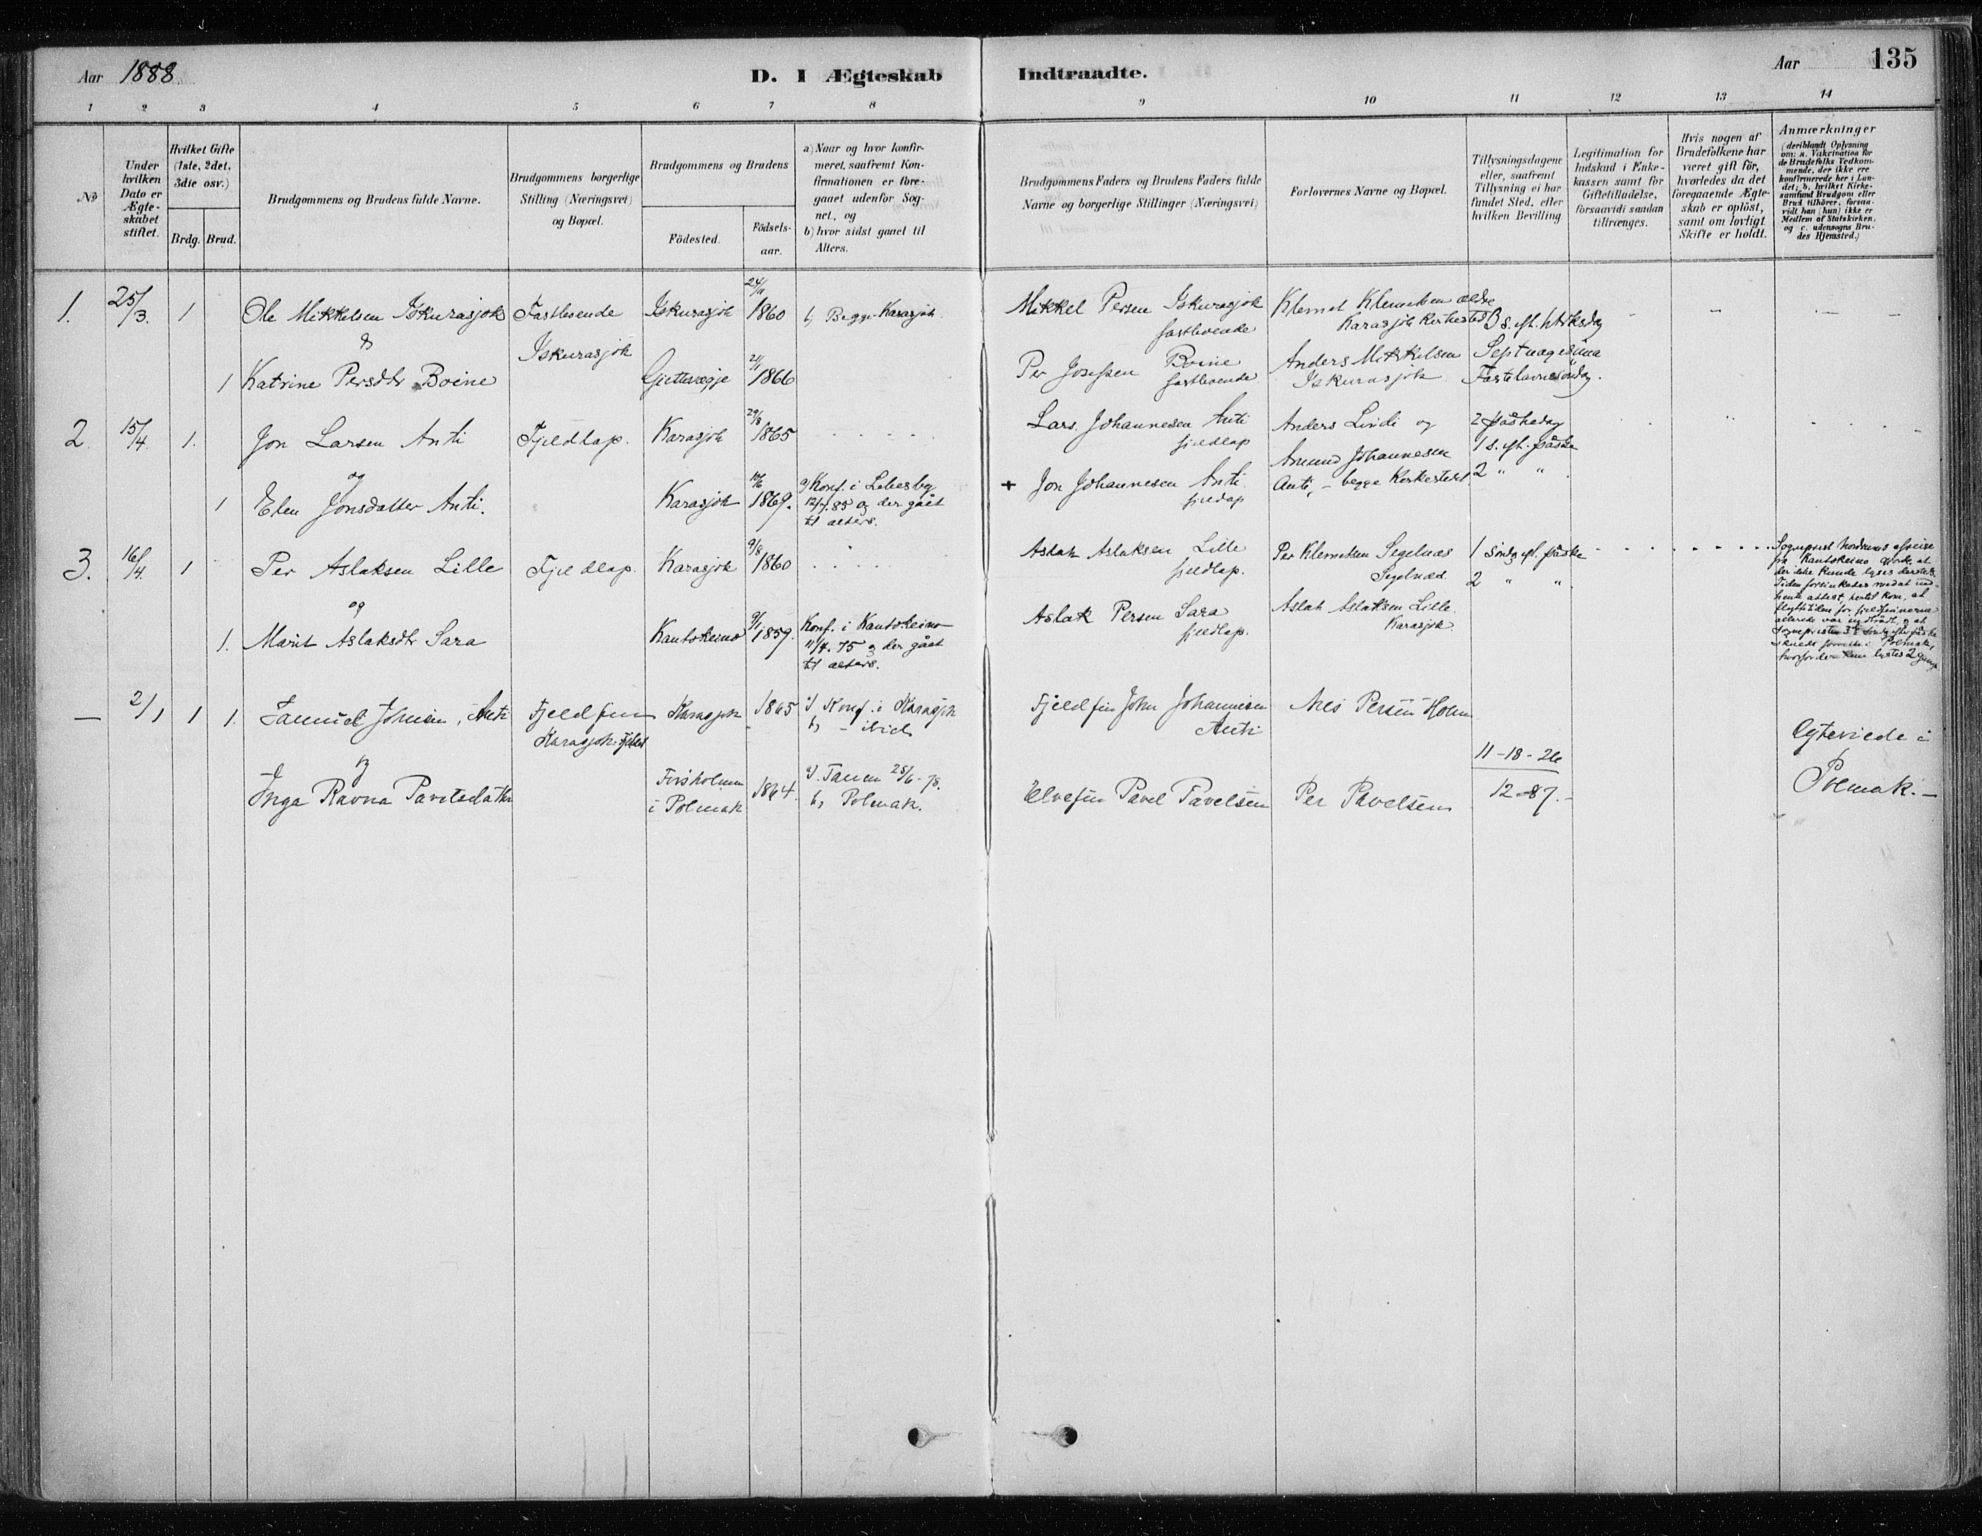 Aar 1888
D. I Ægteskab Indtraadte.
Aar 135
1 2 3 4 5 6 7 8 9 10 11 12 13 14
No
Under hvilken Dato er Ægte- skabet stiftet.
Hvilket Gifte (1ste, 2det, 3die osv.)
Brdg. Brud.
Brudgommens og Brudens fulde Navne.
Brudgommens borgerlige Stilling (Næringsvei) og Bopæl.
Brudgommens og Brudens
Födested.
Födsels- aar.
a) Naar og hvor konfir- meret, saafremt Kon- firmationen er fore- gaaet udenfor Sog- net, og
b) hvor sidst gaaet til Alters.
Brudgommens Faders og Brudens Faders fulde Navne og borgerlige Stillinger (Næringsvei)
Forlovernes Navne og Bopæl.
Tillysningsdagene eller, saafremt Tillysning ei har fundet Sted, efter hvilken Bevilling.
Legitimation for Indskud i Enke- kassen samt for Giftetilladelse, forsaavidt saadan tiltrænges.
Hvis nogen af Brudefolkene har været gift för, hvorledes da det foregaaende Ægte- skab er oplöst, samt om lovligt Skifte er holdt.
Anmærkninger (deriblandt Oplysning om: a. Vakcination for de Brudefolks Vedkom- mende, der ikke ere konfirmerede her i Lan- det; b. hvilket Kirke- samfund Brudgom eller Brud tilhörer, forsaa- vidt han (hun) ikke er Medlem af Statskirken, og c. udensogns Bru- des Hjemsted.)
1. 25/3. 1 Ole Mikkelsen Iskurasjok Fastboende Iskurasjok Iskurasjok 24/11 1860 b, Begge Karasjok. Mikkel Persen Iskurasjok fastboende Klemet Klemetsen ældre Karasjok Kirkested
&
1 Katrine Persdtr Boine Gjettevegje 21/1 1866 Per Josefsen Boine fastboende Anders Mikkelsen Iskurasjok Septuagesima Fastelavnssöndag.
2. 15/4 1. Jon Larsen Anti Fjeldlap. Karasjok 29/8 1865 Lars Johannesen Anti fjeldlap Anders Lindi og 2 påskedag
og
1 Elen Jonsdatter Anti. Karasjok 1869. a) Konf. i Lebesby 12/7. 85 og der gået til alters. + Jon Johannesen Anti fjeldlap Amund Johannesen Anti, - begge Kirkestedet 1 s. ef. påske 2 " "
3. 16/4. 1 Per Aslaksen Lille Fjeldlap. Karasjok 9/8 1860 Aslak Aslaksen Lille fjeldlap. Per Klemetsen Segelnæs Segelnæs 1 söndg ef. påske
og 2 " "
1. Marit Aslaksdtr Sara Kautokeino 9/1 1859. Konf. i Kautokeino 11/4. 75 og der gået til alters. Aslak Persen Sara fjeldlap. Aslak Aslaksen Lille Karasjok.
— 2/1 1 1. Samuel Johnsen, Anti Fjeldfin Karasjok Karasjok 1865 a) Konf. i Karasjok b, - ibid. Fjeldfin John Johannesen Anti Nils Persen Holm
og
Inga Ravna Pavelsdatter Forsholmen i Polmak 1864. a). Tanen 25/6-78. b, Polmak. Elvefin Pavel Pavelsen Per Pavelsen 11-18-26
12-87.-
Ægteviede i Polmak.-